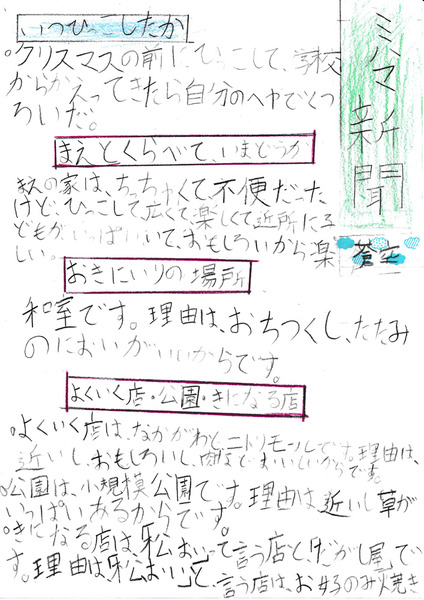 ミハマ新聞
蒼正
いつひっこしたか
・クリスマスの前にひっこして、学校
からかえってきたら自分のヘヤでくつ
ろいだ。
まえとくらべて、いまどうか
まえの家は、ちっちゃくて、不便だった
けど、ひっこして、広くて楽しくて近所に子
どもがいっぱいいて、おもしろいから楽
しい。
おきにいりの場所
和室です。理由は、おちつくし、たたみ
のにおいがいいからです。
よくいく店・公園・きになる店
・よくいく店は、なかがわとニトリモールです。理由は、
近いし、おもしろいし、肉などおいしいからです。
・公園は、小規模公園です。理由は、近いし草が
いっぱいあるからです。
・きになる店は、「松おいって言う店と、「だがし屋」で
す。理由は、「松おい」と、言う店は、お好のみ焼き